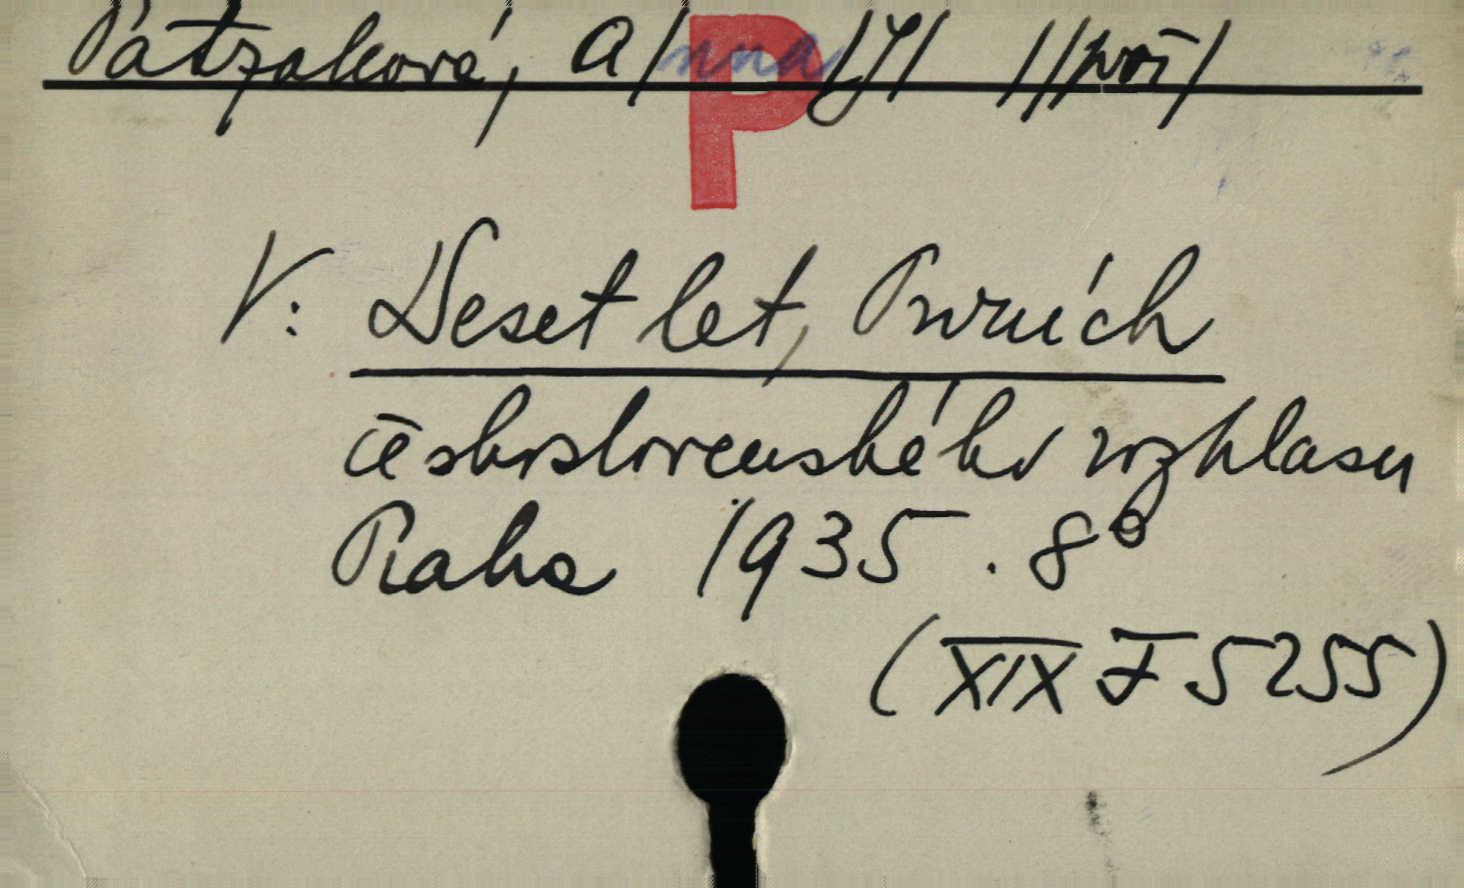 Patzaková, A/nna/ J/ //poř/
P
V: Deset let, Prvních
československého rozhlasu
Praha 1935. 8°
(XIX F 5255)